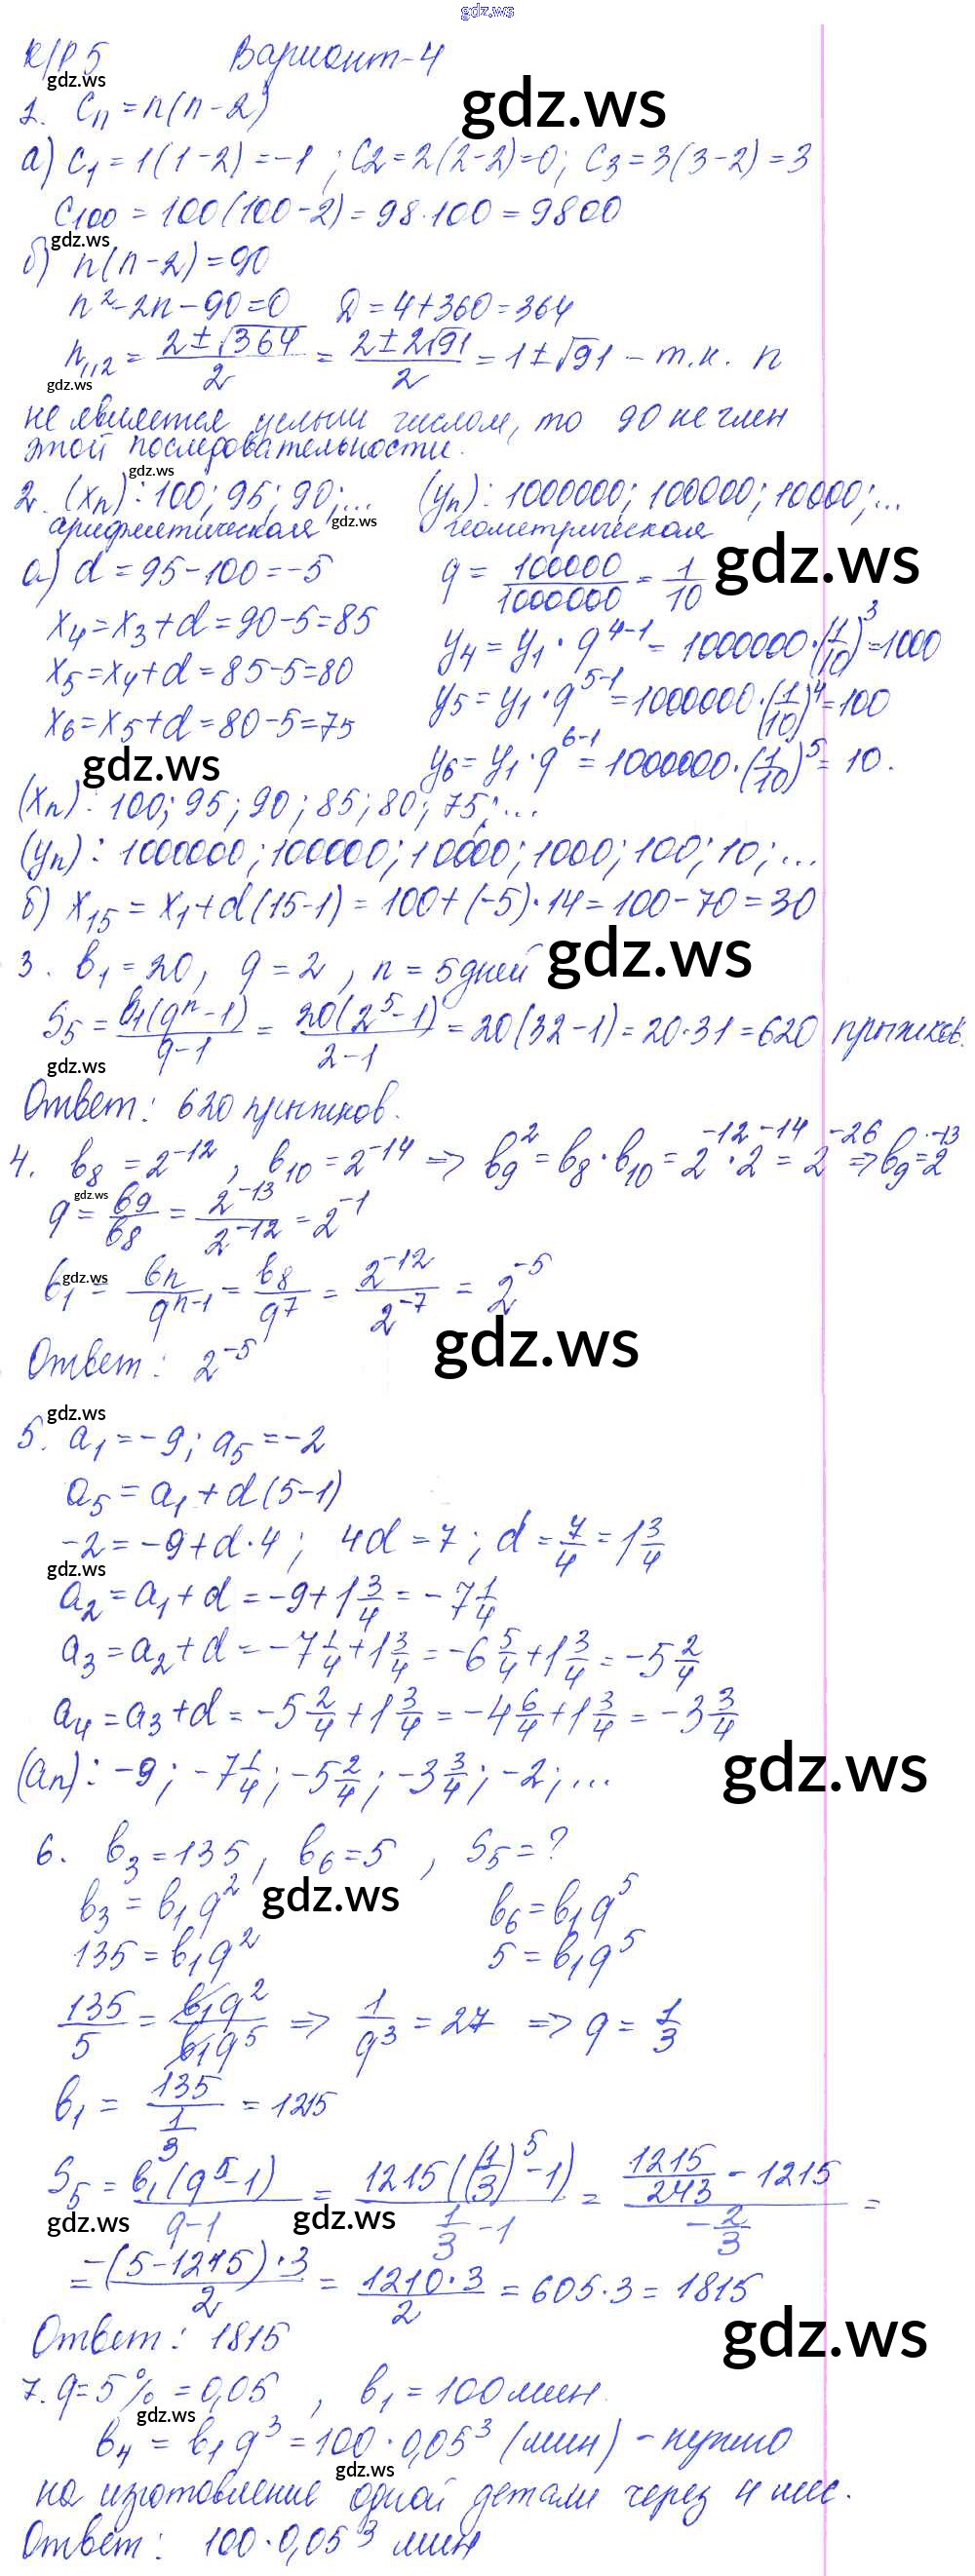 gdz.ws
К/Р 5 Вариант-4
gdz.ws
1. Cn = n(n-2)
gdz.ws
а) C₁ = 1(1-2) = -1 ; C₂ = 2(2-2)=0; C₃ = 3(3-2) = 3
C₁₀₀ = 100(100-2) = 98·100 = 9800
gdz.ws
б) n(n-2) = 90
n²-2n-90=0 D = 4+360=364
n₁,₂ = (2±√364)/2 = (2±2√91)/2 = 1±√91 - т.к. n
gdz.ws
не является целым числом, то 90 не член
этой последовательности.
gdz.ws
2. (xn): 100; 95; 90;... (yn): 1000000; 100000; 10000;...
арифметическая gdz.ws геометрическая
gdz.ws
а) d = 95-100=-5 q = 100000/1000000 = 1/10
x₄=x₃+d=90-5=85 y₄ = y₁·q⁴⁻¹ = 1000000·(1/10)³=1000
x₅=x₄+d=85-5=80 y₅ = y₁·q⁵⁻¹=1000000·(1/10)⁴=100
x₆=x₅+d=80-5=75 y₆ = y₁·q⁶⁻¹=1000000·(1/10)⁵= 10.
gdz.ws
(xn): 100; 95; 90; 85; 80; 75;...
(yn): 1000000; 100000; 10000; 1000; 100; 10;...
б) x₁₅ = x₁+d(15-1) = 100+(-5)·14=100-70=30
gdz.ws
3. b₁=20, q=2, n = 5дней
S₅ = b₁(qⁿ-1)/(q-1) = 20(2⁵-1)/(2-1) = 20(32-1)=20·31=620 прыжков.
gdz.ws
Ответ: 620 прыжков.
4. b₈ = 2⁻¹², b₁₀ = 2⁻¹⁴ => b₉² = b₈·b₁₀ = 2⁻¹²·2⁻¹⁴ = 2⁻²⁶ => b₉=2⁻¹³
gdz.ws
q = b₉/b₈ = 2⁻¹³/2⁻¹² = 2⁻¹
gdz.ws
b₁ = bn/qⁿ⁻¹ = b₈/q⁷ = 2⁻¹²/2⁻⁷ = 2⁻⁵
gdz.ws
Ответ: 2⁻⁵
gdz.ws
5. a₁=-9; a₅=-2
a₅=a₁+d(5-1)
-2=-9+d·4; 4d=7; d=7/4=1 3/4
gdz.ws
a₂=a₁+d=-9+1 3/4=-7 1/4
a₃=a₂+d=-7 1/4+1 3/4=-6 5/4+1 3/4=-5 2/4
a₄=a₃+d=-5 2/4+1 3/4=-4 6/4+1 3/4=-3 3/4
gdz.ws
(an): -9; -7 1/4; -5 2/4; -3 3/4; -2;...
6. b₃=135, b₆=5, S₅=?
gdz.ws
b₃ = b₁q² b₆=b₁q⁵
135=b₁q² 5=b₁q⁵
135/5 = b₁q²/b₁q⁵ => 1/q³ = 27 => q = 1/3
b₁ = 135/(1/3) = 1215
S₅ = b₁(q⁵-1)/(q-1) = 1215((1/3)⁵-1)/(1/3-1) = (1215/243-1215)/(-2/3) =
gdz.ws gdz.ws
= -(5-1215)·3/2 = 1210·3/2 = 605·3=1815
gdz.ws
Ответ: 1815
7. q=5% = 0,05, b₁=100мин.
gdz.ws
b₄ = b₁q³=100·0,05³ (мин) - нужно
gdz.ws
на изготовление одной детали через 4 мес.
Ответ: 100·0,05³ мин